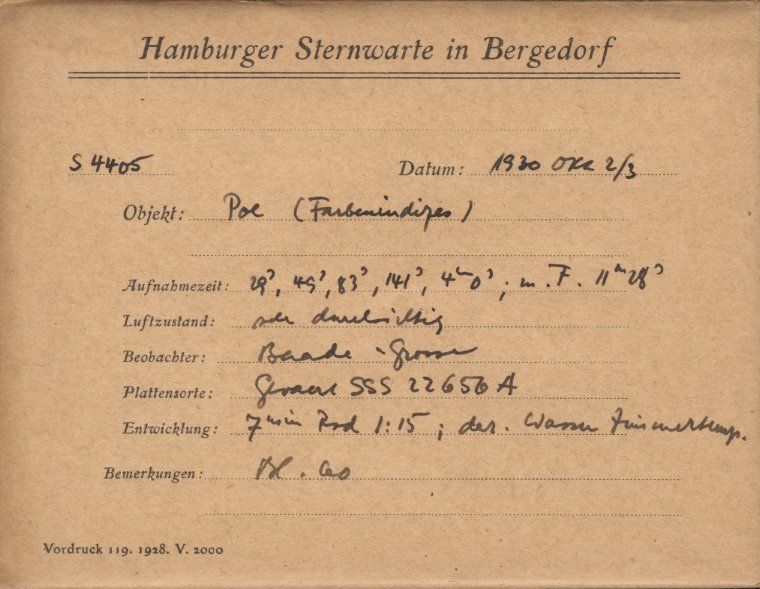 Hamburger Sternwarte in Bergedorf
S 4405 Datum: 1930 Okt 2/3
Objekt: Pol (Farbenindizes)
Aufnahmezeit: 29ˢ, 49ˢ, 83ˢ, 141ˢ, 4ᵐ0ˢ; m. F. 11ᵐ28ˢ
Luftzustand: sehr durchsichtig
Beobachter: Baade - Grosse
Plattensorte: Gevaert SSS 22656 A
Entwicklung: 7 min Rod 1:15; Wasser Zimmertemp.
Bemerkungen: Bl. 60
Vordruck 119. 1928. V. 2000